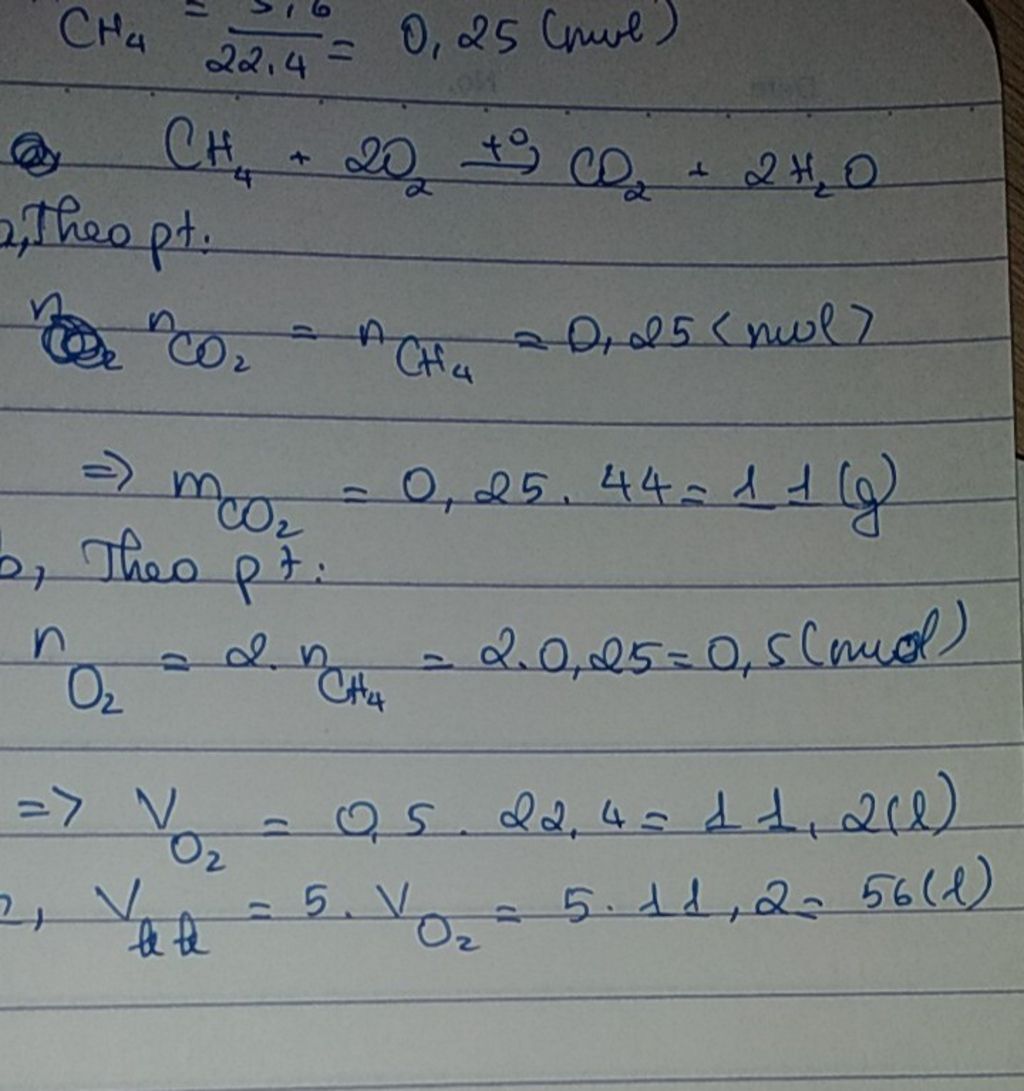 CH₄ = 5,6/22,4 = 0,25 (mol)
CH₄ + 2O₂ →t° CO₂ + 2H₂O
a, Theo pt:
nCO₂ = nCH₄ = 0,25 <mol>
=> mCO₂ = 0,25 . 44 = 11 (g)
b, Theo pt:
nO₂ = 2. nCH₄ = 2.0,25 = 0,5 (mol)
=> VO₂ = 0,5 . 22,4 = 11,2 (l)
c, Vkk = 5. VO₂ = 5. 11,2 = 56 (l)